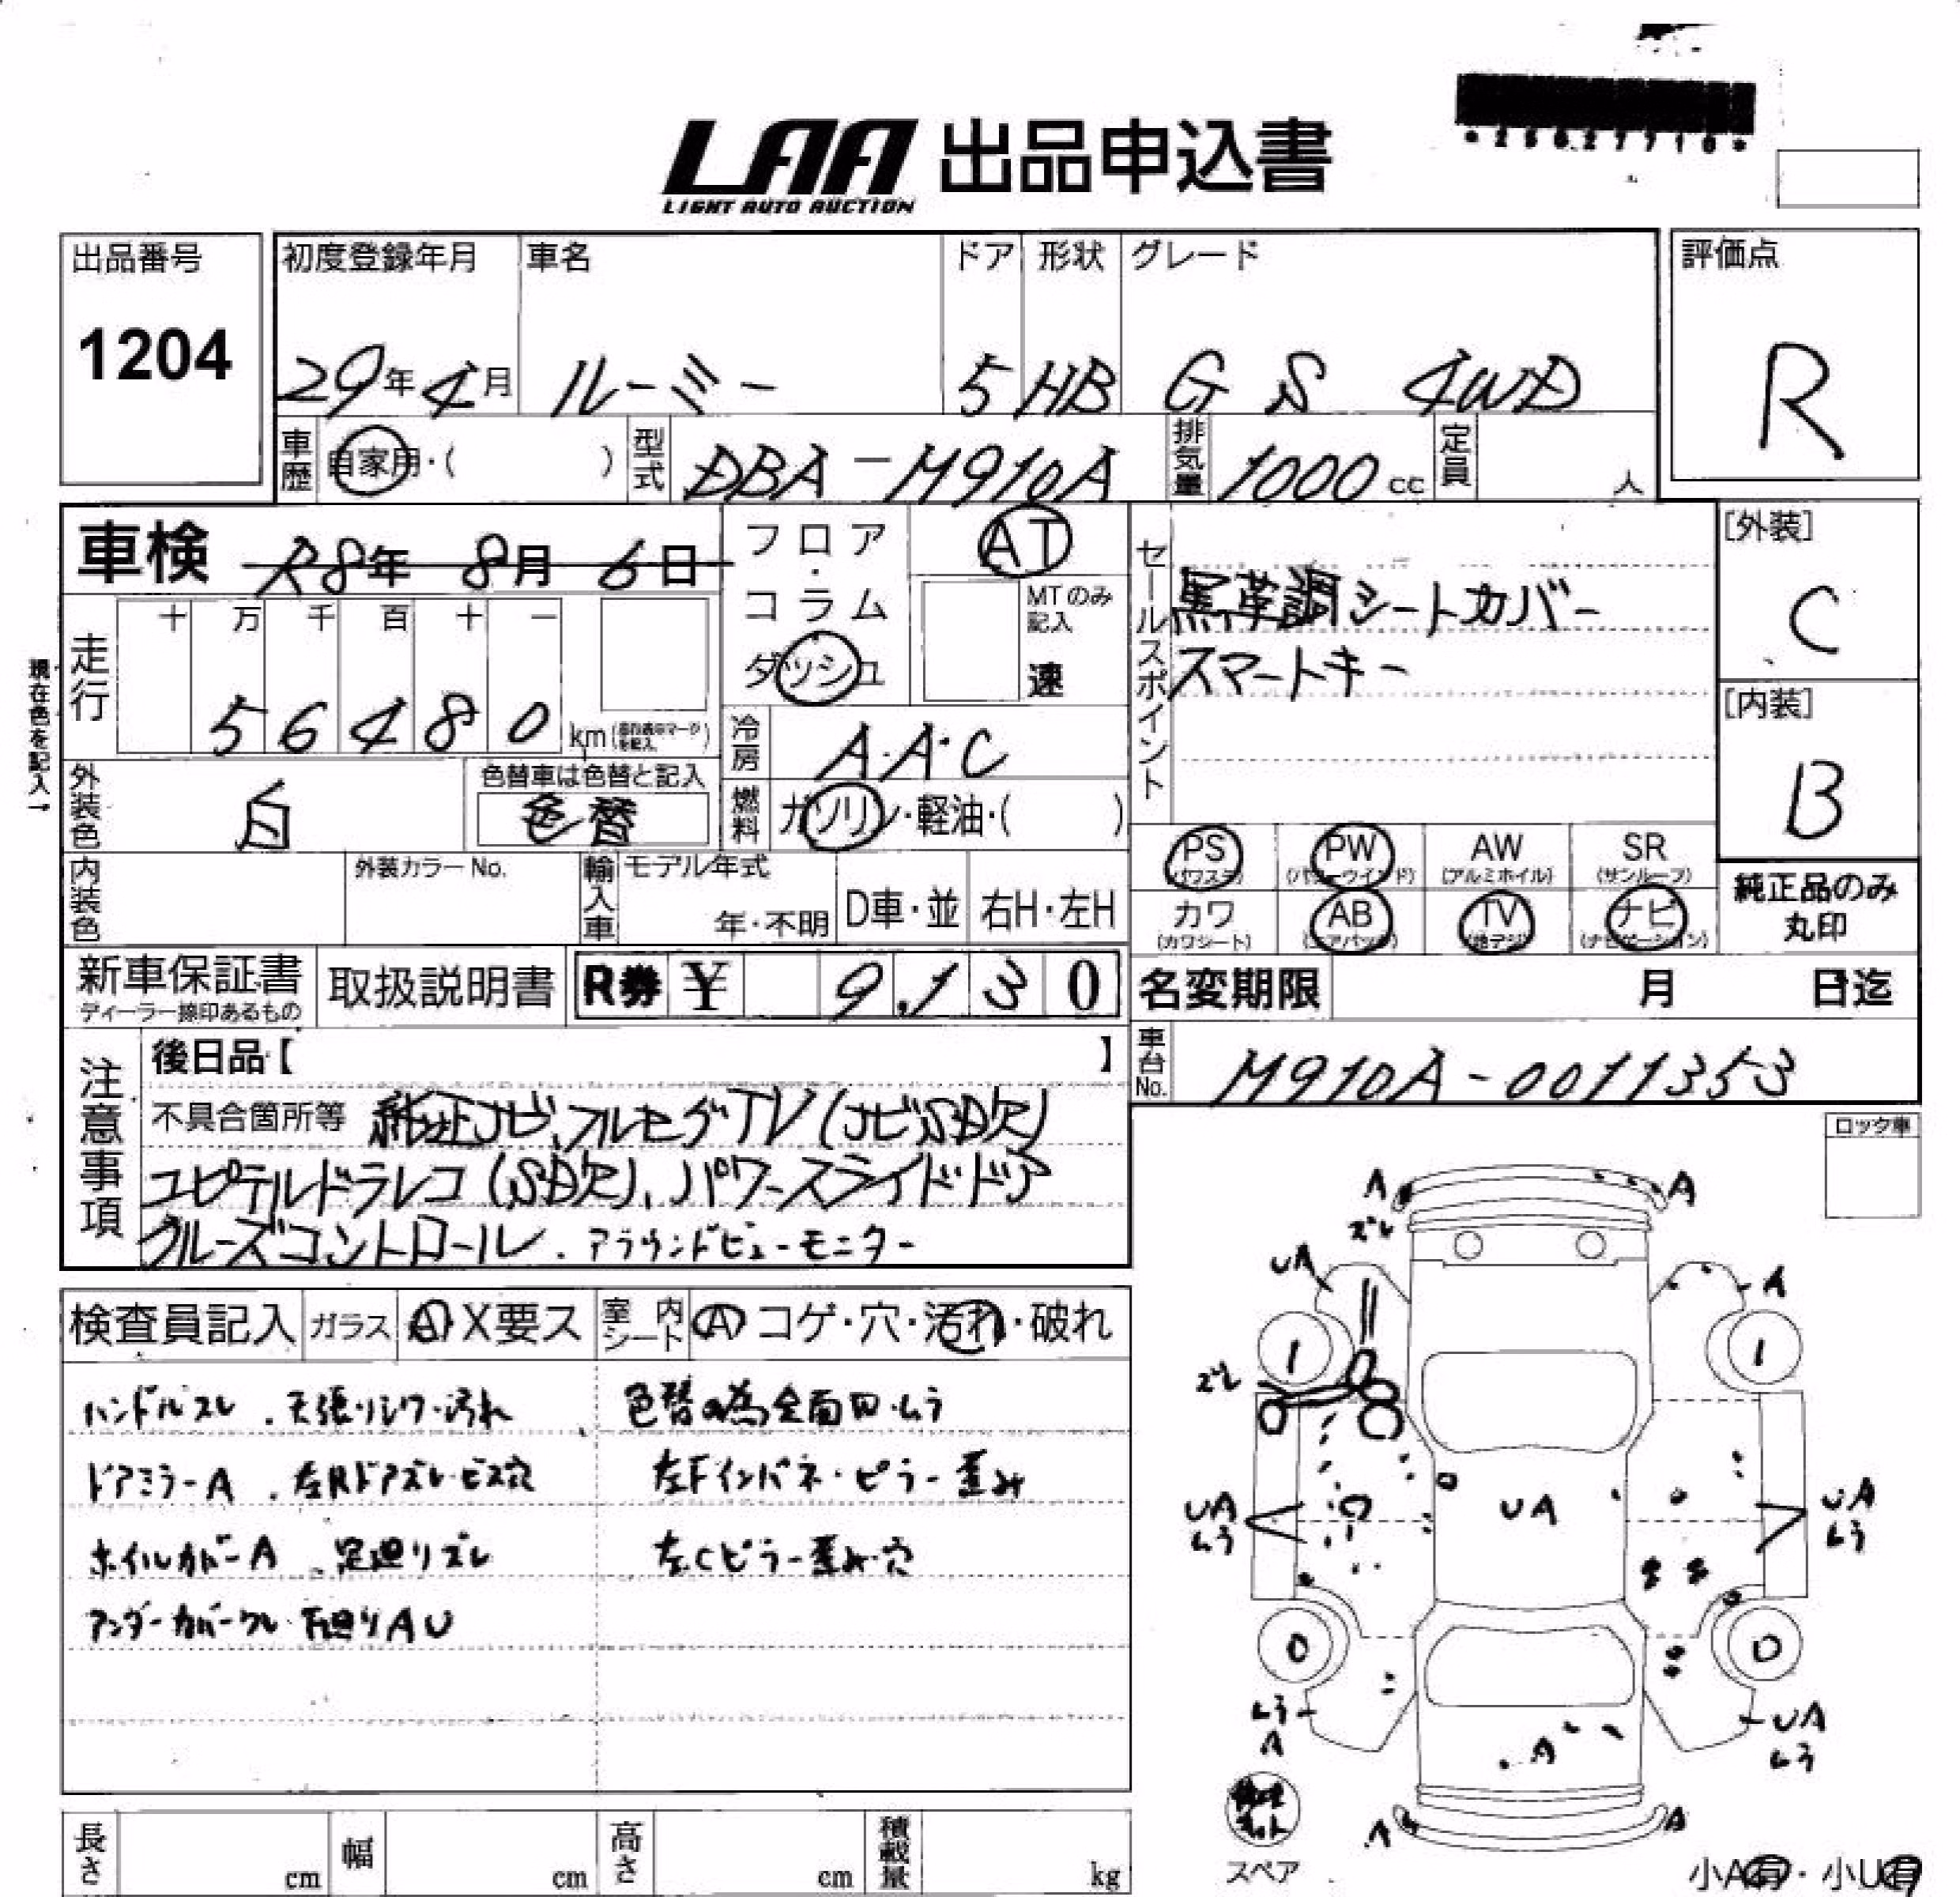 LAA 出品申込書
LIGHT AUTO AUCTION
出品番号
1204
初度登録年月
29年4月
車名
ルーミー
ドア
5
形状
HB
グレード
G S 4WD
評価点
R
車歴 自家用・( )
型式 DBA-M910A
排気量 1000cc
定員 人
車検 R8年 8月 6日
フロア・コラム
ダッシュ
AT
MTのみ記入
速
現在色を記入→
走行
十 万 千 百 十 一
5 6 4 8 0 km
冷房 A・A・C
燃料 ガソリン・軽油・( )
外装色 白
色替車は色替と記入
色替
内装色
外装カラーNo.
輸入車
モデル年式
年・不明
D車・並
右H・左H
セールスポイント
黒革調シートカバー
スマートキー
[外装]
C
[内装]
B
PS (パワステ)
PW (パワーウインド)
AW (アルミホイル)
SR (サンルーフ)
カワ (カワシート)
AB (エアバック)
TV (地デジ)
ナビ (ナビゲーション)
純正品のみ
丸印
新車保証書
ディーラー捺印あるもの
取扱説明書
R券 ¥ 9,130
名変期限 月 日迄
車台No. M910A-0011353
注意事項
後日品【 】
不具合箇所等 純正ナビ、フルセグTV(ナビSD欠)
ユピテルドラレコ(SD欠)、パワースライドドア
クルーズコントロール、アラウンドビューモニター
ロック車
検査員記入
ガラス A X要ス
室内シート A コゲ・穴・汚れ・破れ
ハンドルスレ、天張りシワ・汚れ
ドアミラーA、左Rドアズレ・ビス穴
ホイルカバーA、足廻りズレ
アンダーカバーワレ 下廻りAU
色替の為全面凹・ムラ
左Fインパネ・ピラー歪み
左Cピラー歪み・穴
A
A
ズレ
UA
A
1
1
ズレ
UA
ムラ
UA
UA
ムラ
0
0
ムラ
A
A
UA
ムラ
A
A
スペア
小A有・小U有
長さ cm
幅 cm
高さ cm
積載量 kg